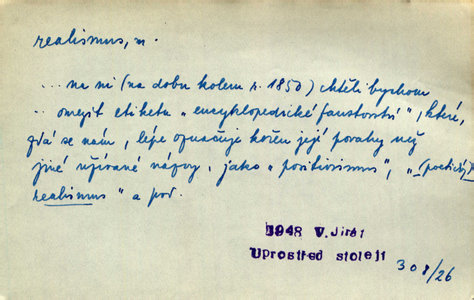 realismus, m.
... na ni (na dobu kolem r. 1850) chtěli bychom
.. omezit etiketu „encyklopedické faustovství", které,
zdá se nám, lépe označuje kořen její povahy než
jiné užívané názvy, jako „positivismus", „(poetický)
realismus" a pod.
1948 V.Jirát
Uprostřed století
308/26